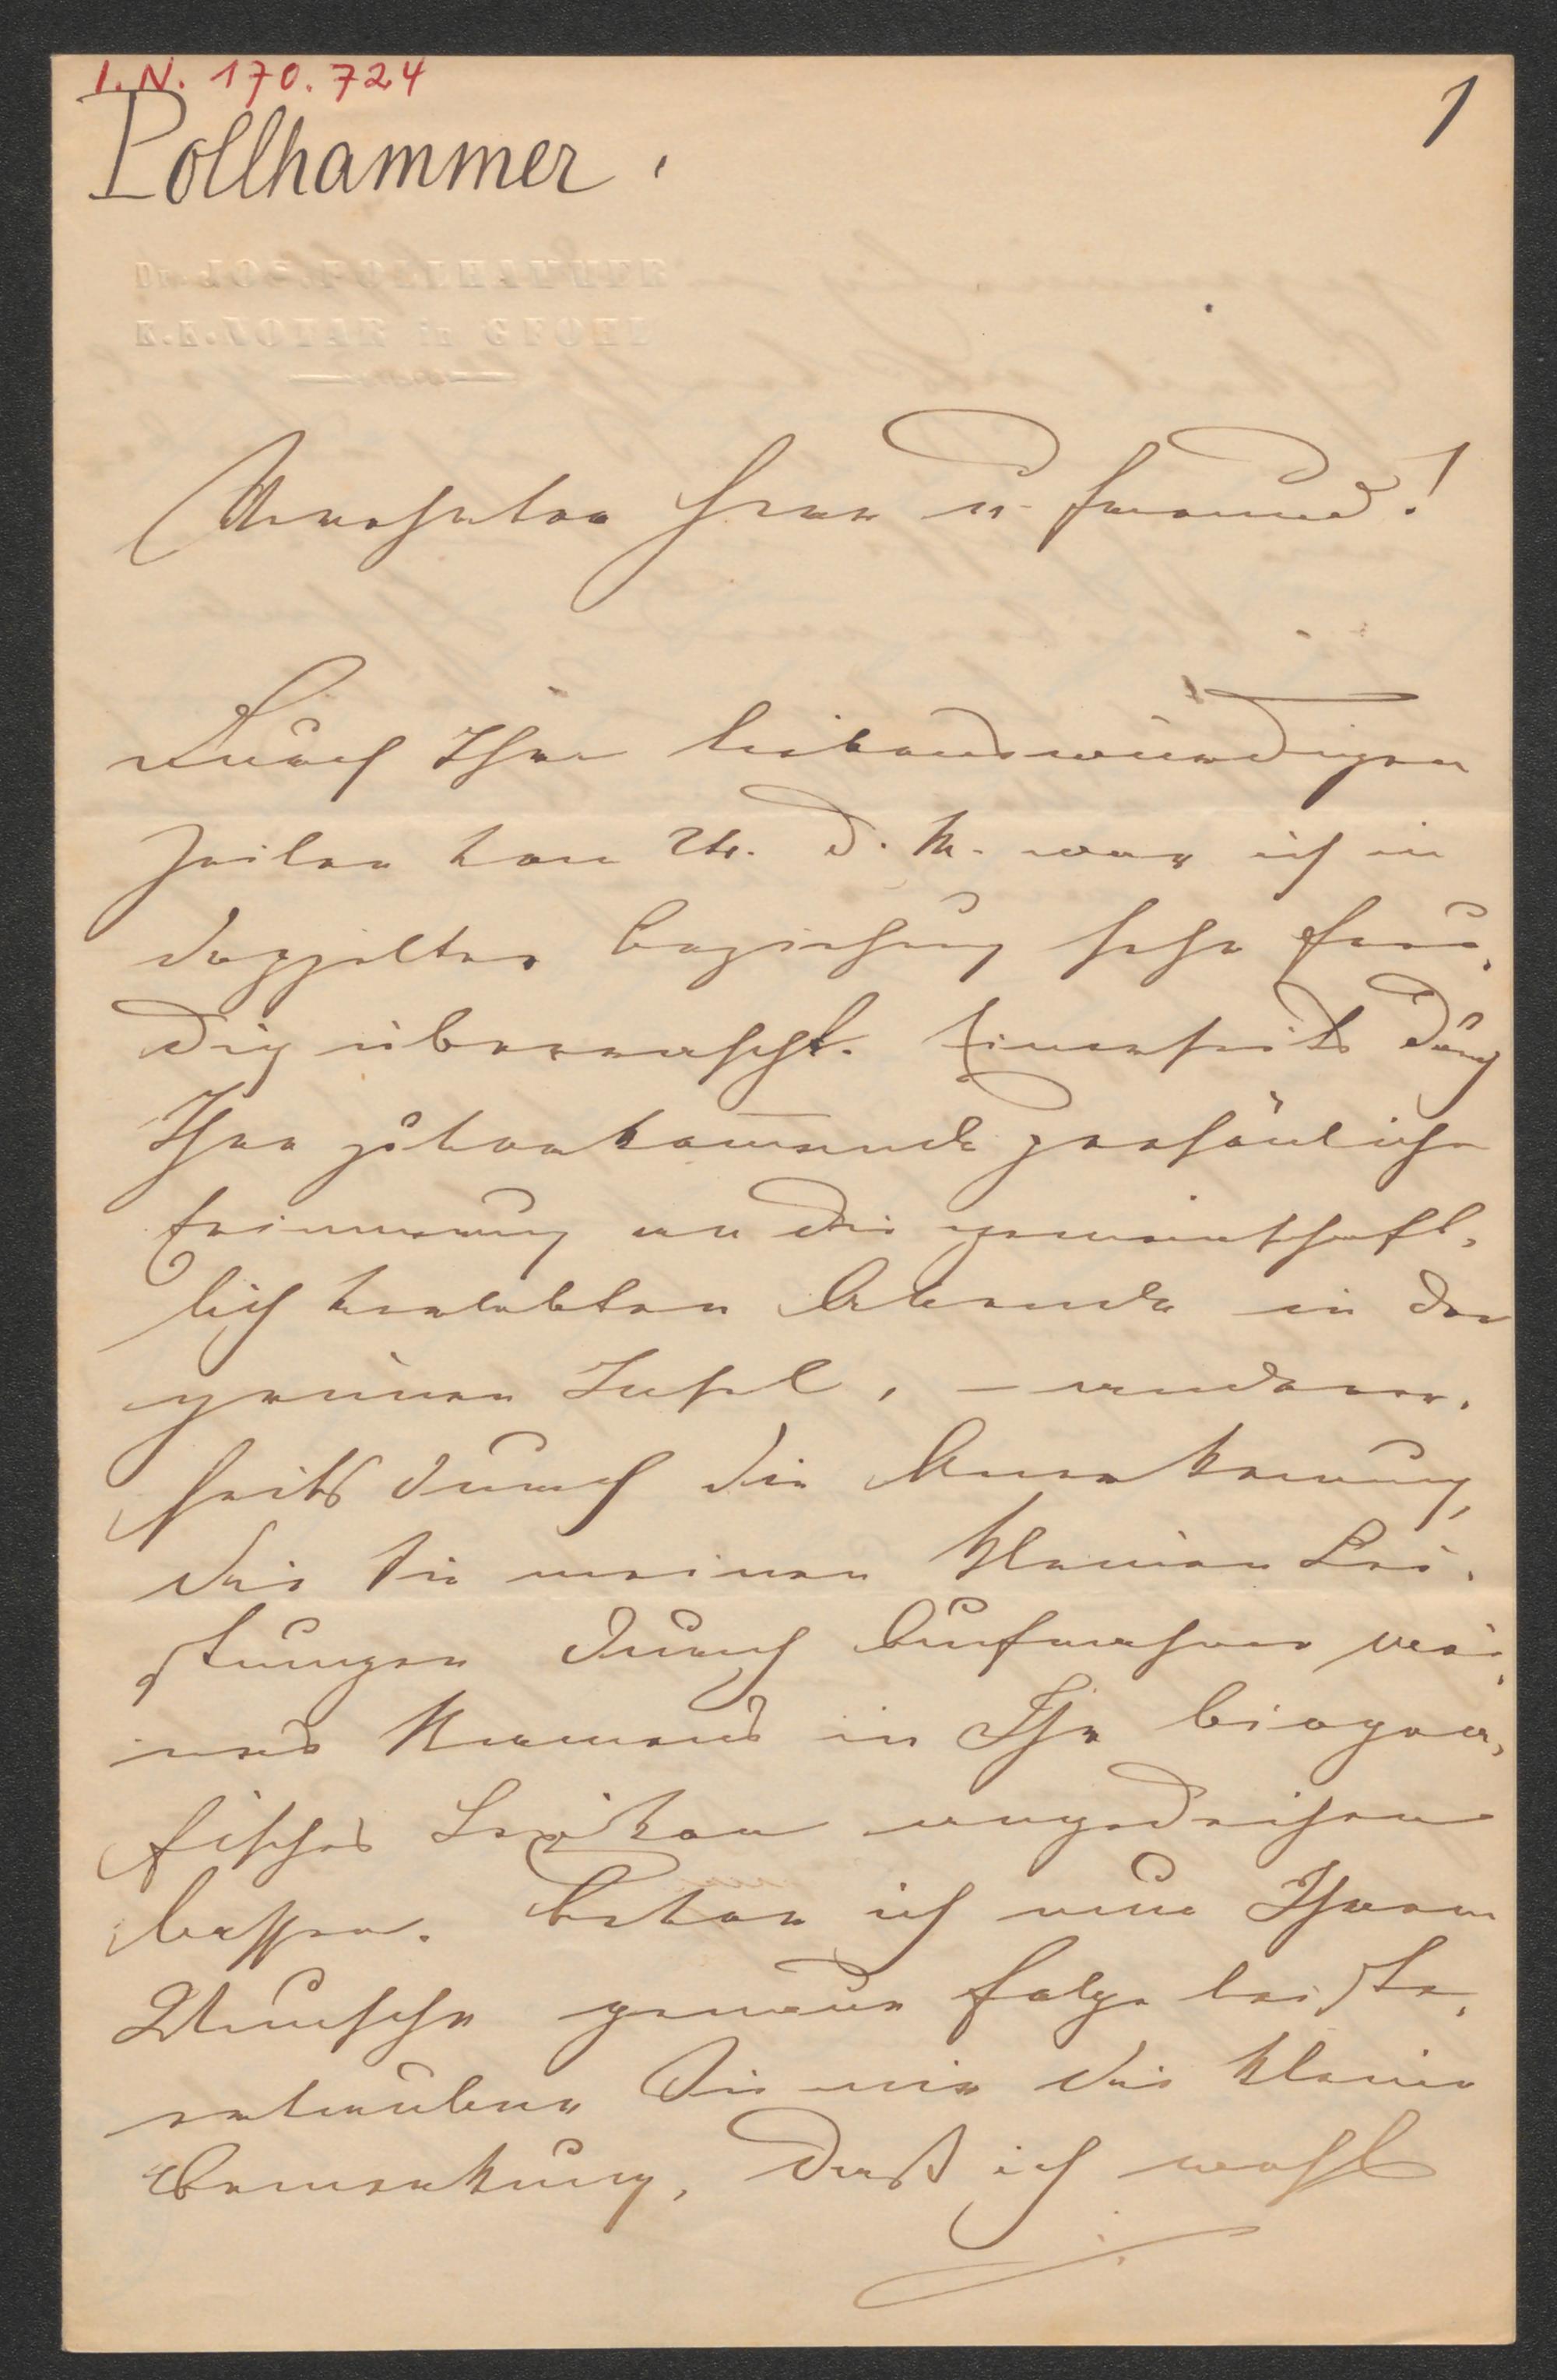 I.N. 170.724
1
Pollhammer.
Dr. JOS. POLLHAMMER
K.K. NOTAR in GFOEHL
Verehrter Herr u. Freund!
Durch Ihre liebenswürdigen
Zeilen vom d. M. war ich in
doppelter Beziehung sehr freu-
dig überrascht. Einerseits durch
Ihre zuvorkommende persönliche
Erinnerung an die gemeinschaft-
lich verlebten Abende in der
grünen Insel, – anderer-
seits durch die Anerkennung,
die Sie meinen kleinen Lei-
stungen durch Aufnahme mei-
nes Namens in Ihr biogra-
fisches Lexikon angedeihen
lassen. Bevor ich nun Ihrem
Wunsche genauer Folge leiste,
erlauben Sie mir die kleine
Bemerkung, daß ich wohl